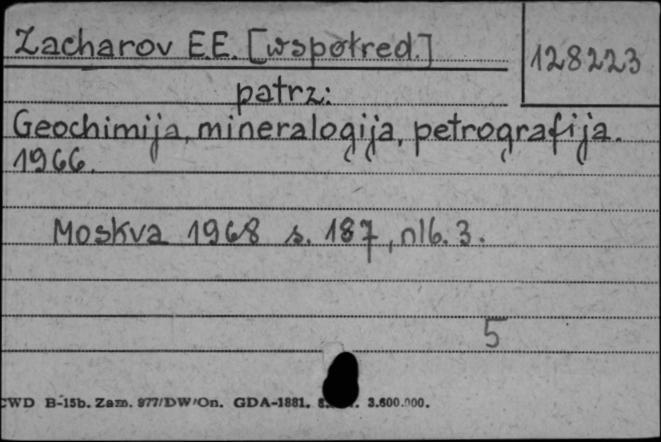 Zacharov E.E. [współred.]
128223
patrz:
Geochimija, mineralogija, petrografija.
1966.
Moskva 1968 s. 187, nlb. 3.
5
CWD B-15b. Zam. 977/DW/On. GDA-1881. 3.600.000.